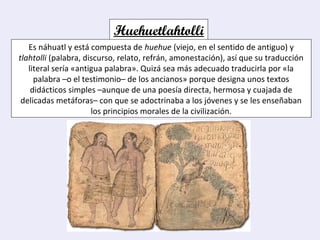 Huehuetlahtolli
Es náhuatl y está compuesta de huehue (viejo, en el sentido de antiguo) y
tlahtolli (palabra, discurso, relato, refrán, amonestación), así que su traducción
literal sería «antigua palabra». Quizá sea más adecuado traducirla por «la
palabra –o el testimonio– de los ancianos» porque designa unos textos
didácticos simples –aunque de una poesía directa, hermosa y cuajada de
delicadas metáforas– con que se adoctrinaba a los jóvenes y se les enseñaban
los principios morales de la civilización.